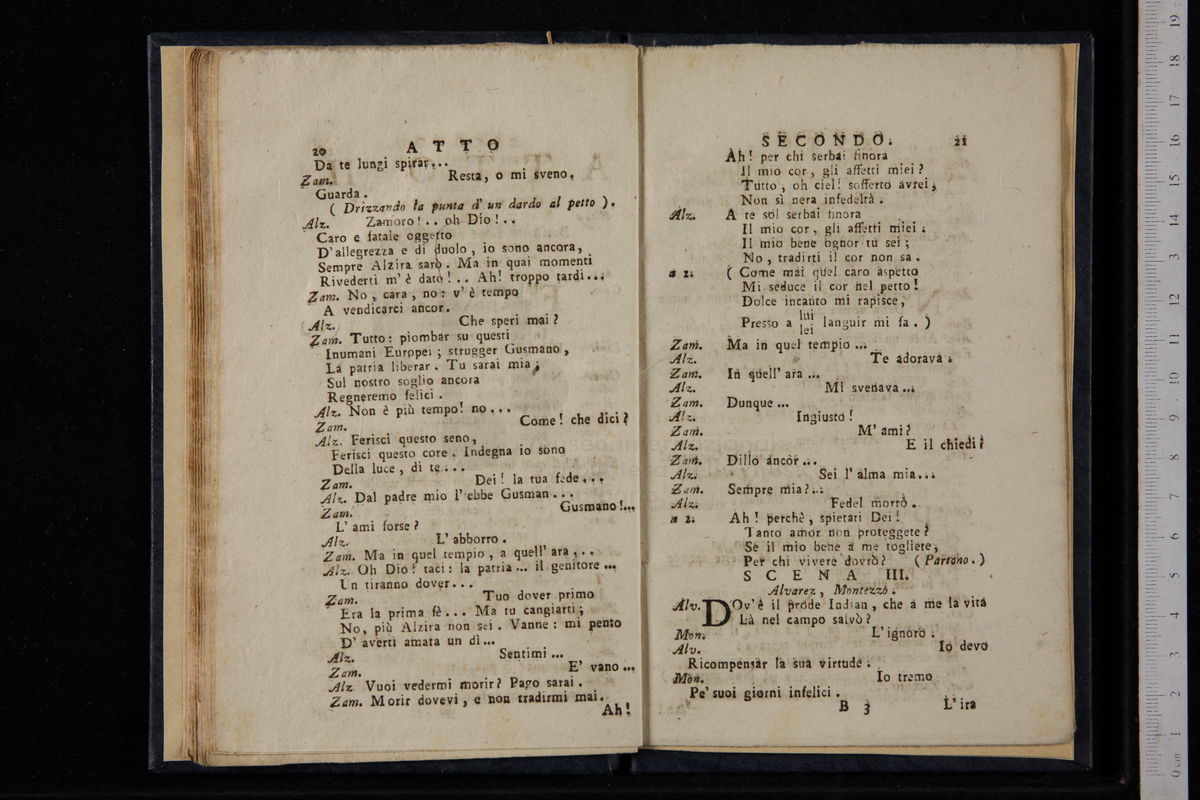 20 ATTO
Da te lungi spirar...
Zam. Resta, o mi sveno,
Guarda.
( Drizzando la punta d' un dardo al petto ).
Alz. Zamoro!.. oh Dio!..
Caro e fatale oggetto
D'allegrezza e di duolo, io sono ancora,
Sempre Alzira sarò. Ma in quai momenti
Rivederti m' è dato!.. Ah! troppo tardi...
Zam. No, cara, no: v' è tempo
A vendicarci ancor.
Alz. Che speri mai?
Zam. Tutto: piombar su questi
Inumani Europei; strugger Gusmano,
La patria liberar. Tu sarai mia;
Sul nostro soglio ancora
Regneremo felici.
Alz. Non è più tempo! no...
Zam. Come! che dici?
Alz. Ferisci questo seno,
Ferisci questo core. Indegna io sono
Della luce, di te...
Zam. Dei! la tua fede...
Alz. Dal padre mio l' ebbe Gusman...
Zam. Gusmano!...
L' ami forse?
Alz. L' abborro.
Zam. Ma in quel tempio, a quell' ara...
Alz. Oh Dio! taci: la patria... il genitore...
Un tiranno dover...
Zam. Tuo dover primo
Era la prima fè... Ma tu cangiarti;
No, più Alzira non sei. Vanne: mi pento
D' averti amata un dì...
Alz. Sentimi...
Zam. E' vano...
Alz Vuoi vedermi morir? Pago sarai.
Zam. Morir dovevi, e non tradirmi mai.
Ah!
SECONDO. 21
Ah! per chi serbai finora
Il mio cor, gli affetti miei?
Tutto, oh ciel! sofferto avrei,
Non sì nera infedeltà.
Alz. A te sol serbai finora
Il mio cor, gli affetti miei:
Il mio bene ognor tu sei;
No, tradirti il cor non sa.
a 2. ( Come mai quel caro aspetto
Mi seduce il cor nel petto!
Dolce incanto mi rapisce,
Presso a lui lei languir mi fa. )
Zam. Ma in quel tempio...
Alz. Te adorava.
Zam. In quell' ara...
Alz. Mi svenava...
Zam. Dunque...
Alz. Ingiusto!
Zam. M' ami?
Alz. E il chiedi?
Zam. Dillo ancor...
Alz. Sei l' alma mia...
Zam. Sempre mia?..
Alz. Fedel morrò.
a 2. Ah! perchè, spietati Dei!
Tanto amor non proteggete?
Se il mio bene a me togliete,
Per chi vivere dovrò? ( Partono. )
SCENA III.
Alvarez, Montezzo.
Alv. DOv'è il prode Indian, che a me la vita
Là nel campo salvò?
Mon. L' ignoro.
Alv. Io devo
Ricompensar la sua virtude.
Mon. Io tremo
Pe' suoi giorni infelici.
B 3 L' ira